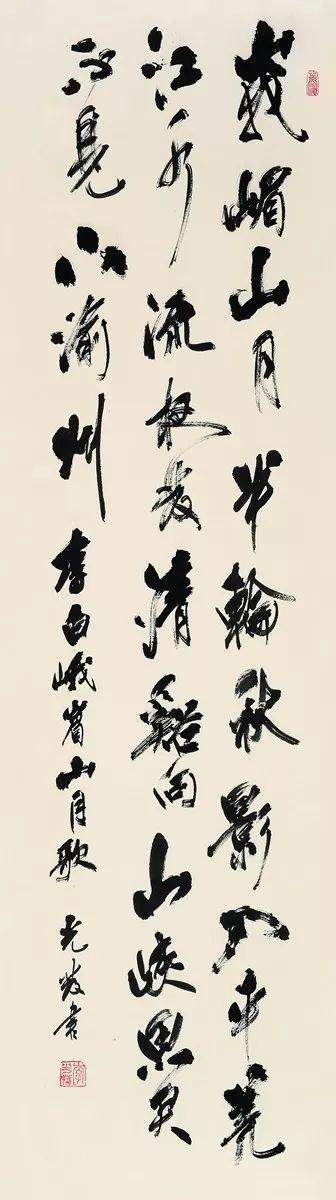 峩嵋山月半輪秋影入平羌
江水流夜發清谿向山峽思君
不見下渝州 李白峨眉山月歌 書